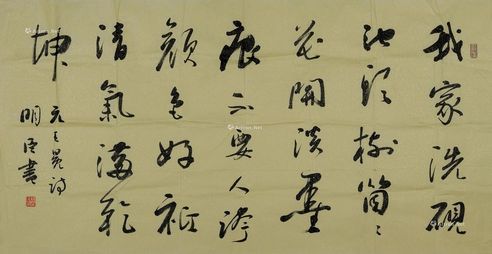 我家洗硯
池頭樹箇〻
花開淡墨
痕不要人誇
顏色好祗
清氣滿乾
坤
元王冕詩
明臣書